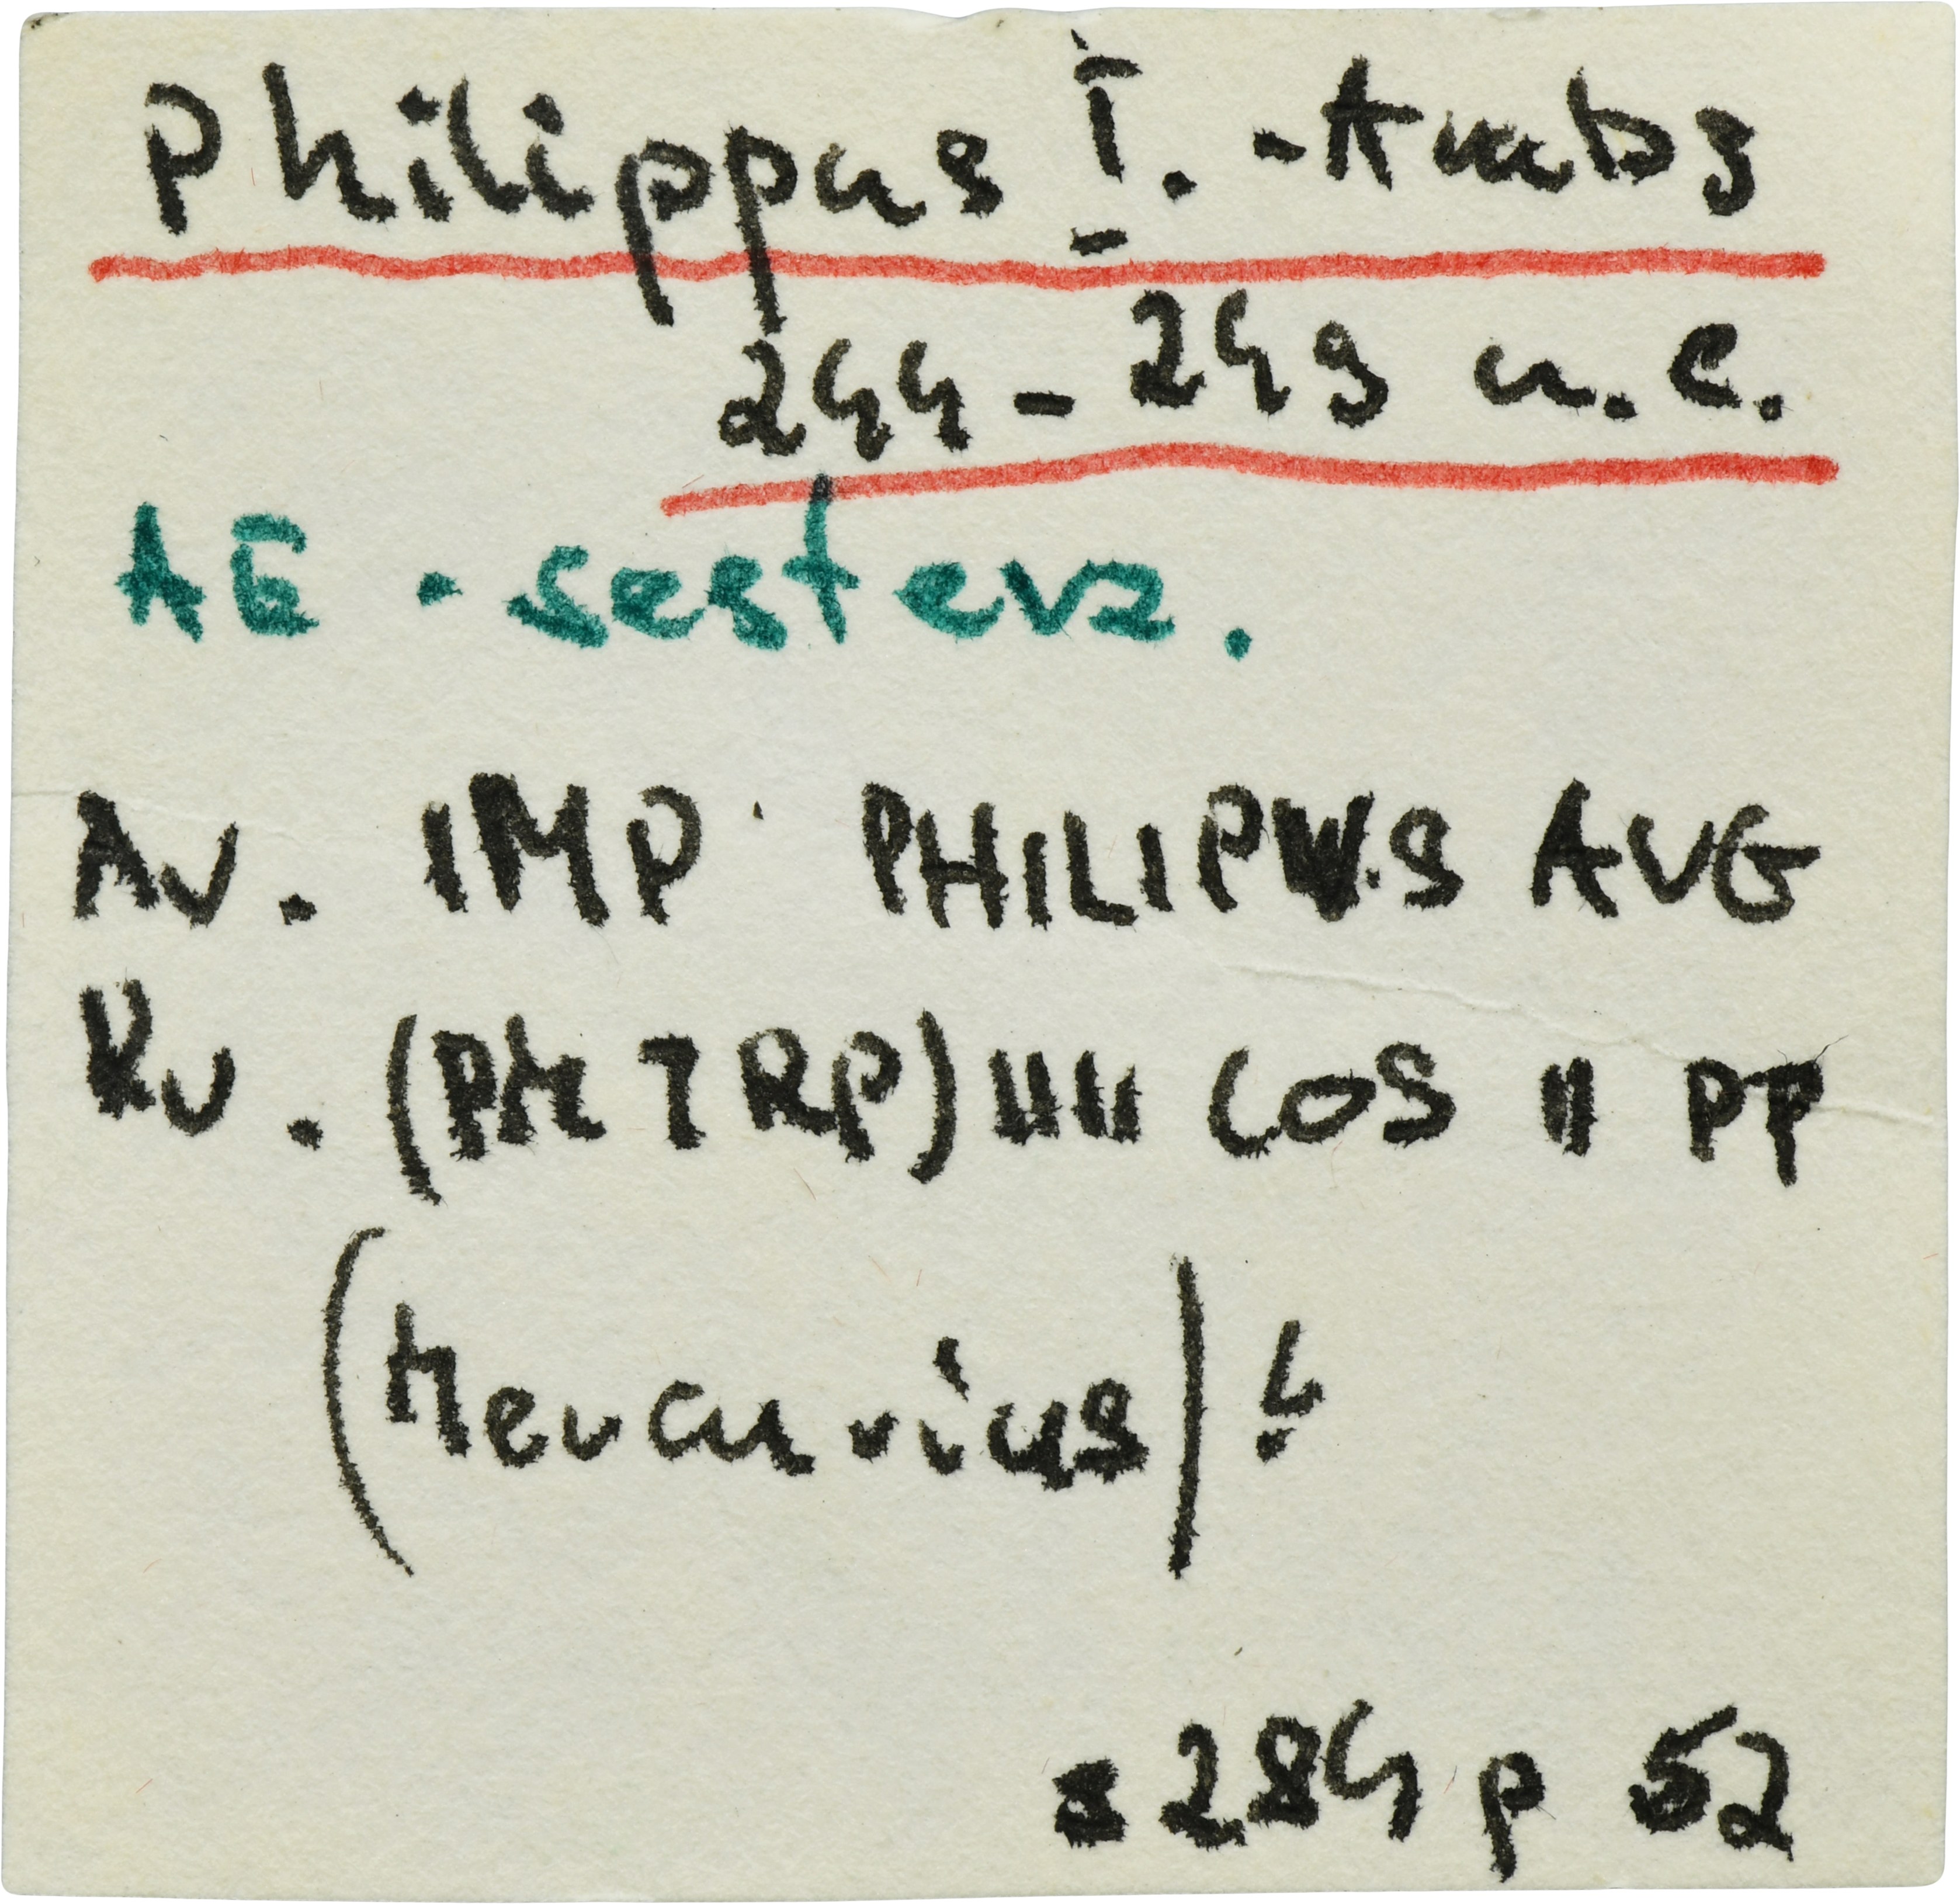 Philippus I. - Arabs
244 - 249 n. e.
AE - sesterz.
Av. IMP PHILIPVVS AVG
Rv. (PM TRP) IIII COS II PP
(Mercurius)!
s 284 p 52